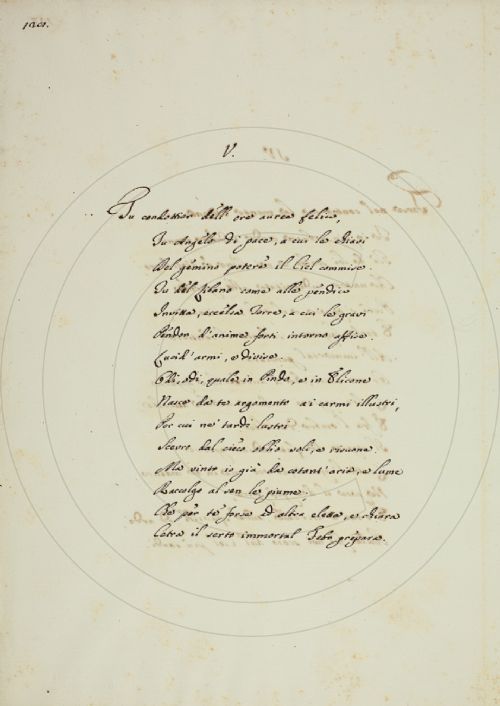 V.
Tu condottier dell' ore auree felice,
Tu Angelo di pace, a cui le chiavi
Del gemino potere il Ciel commise
Tu del Libano come alle pendice
Invitta, eccelsa Torre, a cui le gravi
Pendon d'anime forti intorno affise
armi, e divise.
Odi, odi, quale in Pindo, e in Elicone
Nasce da te argomento a i carmi illustri,
Per cui ne' tardi lustri
Scevro dal cieco oblio voli, e risuone.
Ma vinto io già da cotant' aria, e lume
Raccolgo al sen le piume.
Che per te forse ad altra eletta, e chiara
Cetra il serto immortal Febo prepara.